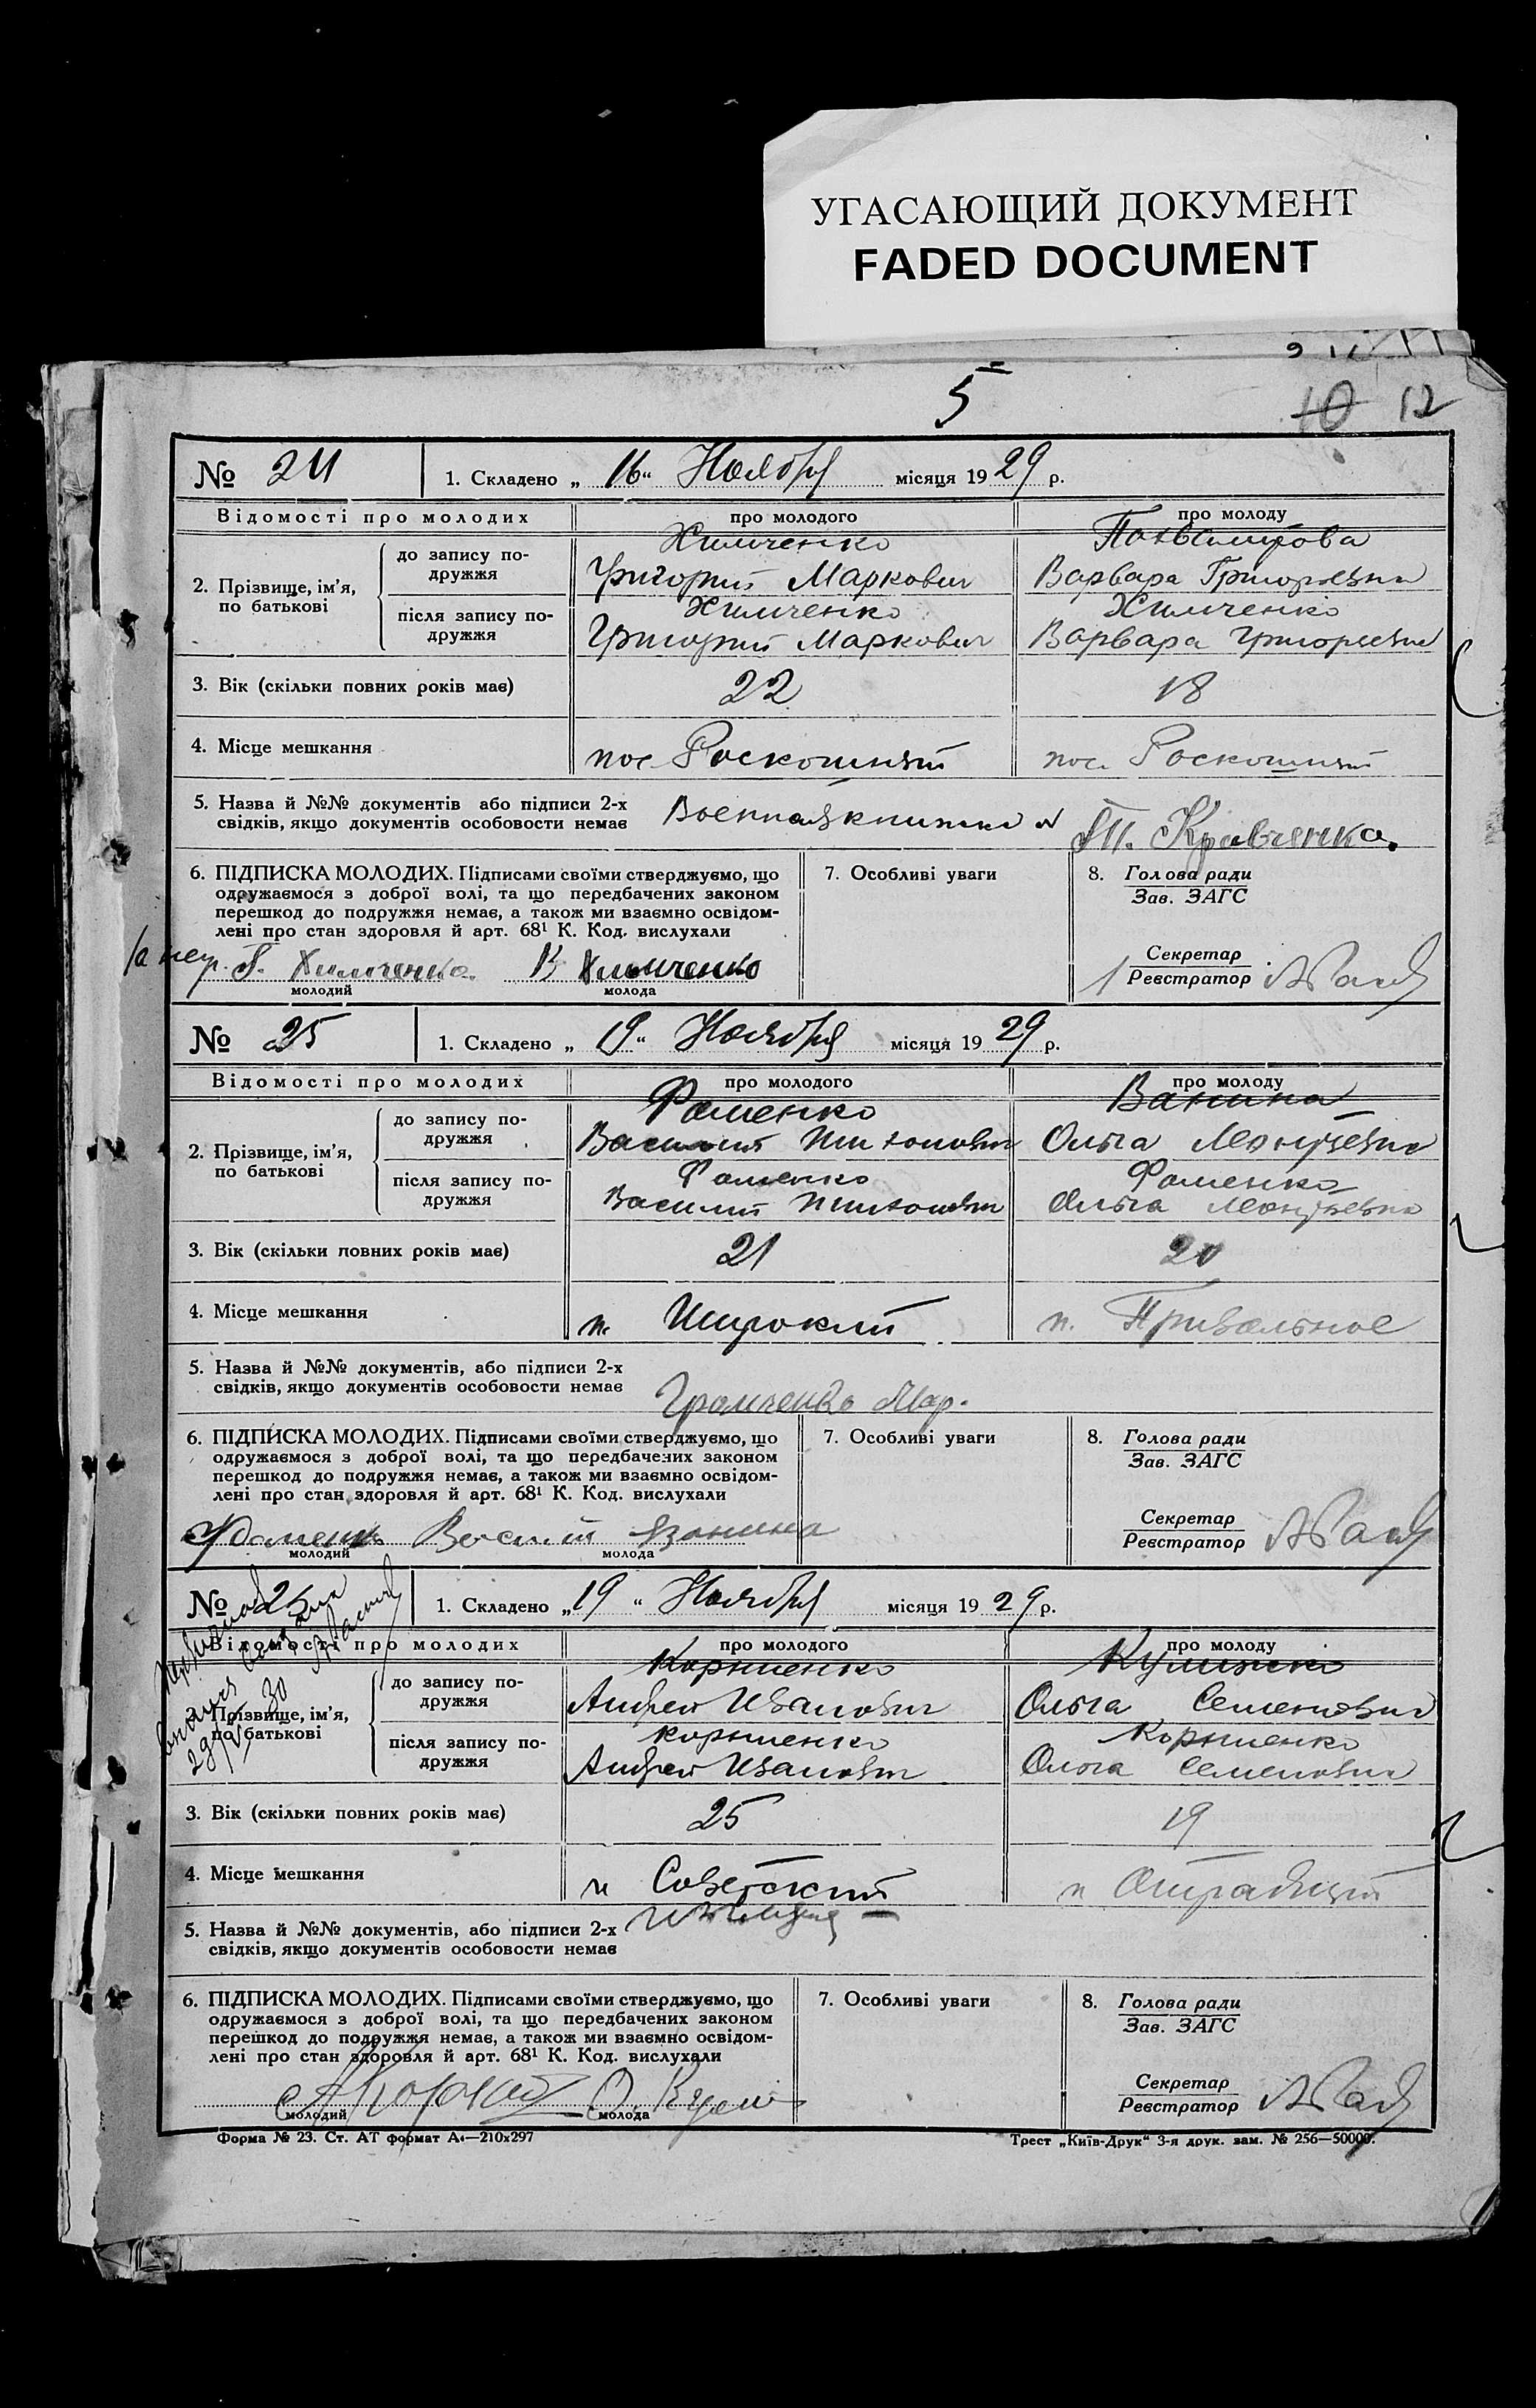 УГАСАЮЩИЙ ДОКУМЕНТ
FADED DOCUMENT
5
10 12
№ 24 1. Складено „16“ Ноября місяця 1929 р.
Відомості про молодих про молодого про молоду
2. Прізвище, ім’я, по батькові
до запису подружжя
Химченко
Григорий Маркович
Варвара Григорьевна
після запису подружжя
Химченко Химченко
Григорий Маркович Варвара Григорьевна
3. Вік (скільки повних років має) 22 18
4. Місце мешкання пос Роскошный пос. Роскошный
5. Назва й №№ документів або підписи 2-х
свідків, якщо документів особовости немає
Военная книжка Кравченко.
6. ПІДПИСКА МОЛОДИХ. Підписами своїми стверджуємо, що
одружаємося з доброї волі, та що передбачених законом
перешкод до подружжя немає, а також ми взаємно освідом-
лені про стан здоровля й арт. 68¹ К. Код. вислухали
Г. Химченко В Химченко
молодий молода
7. Особливі уваги
8. Голова ради
Зав. ЗАГС
Секретар
Реєстратор
№ 25 1. Складено „19“ Ноября місяця 1929 р.
Відомості про молодих про молодого про молоду
2. Прізвище, ім’я, по батькові
до запису подружжя
Фоменко Ванина
Василий Тихонович Ольга
після запису подружжя
Фоменко Фоменко
Василий Тихонович Ольга
3. Вік (скільки повних років має) 21 20
4. Місце мешкання п. Широкий п. Привольное
5. Назва й №№ документів, або підписи 2-х
свідків, якщо документів особовости немає
Громченко Мар.
6. ПІДПИСКА МОЛОДИХ. Підписами своїми стверджуємо, що
одружаємося з доброї волі, та що передбачених законом
перешкод до подружжя немає, а також ми взаємно освідом-
лені про стан здоровля й арт. 68¹ К. Код. вислухали
Ванина
молодий молода
7. Особливі уваги
8. Голова ради
Зав. ЗАГС
Секретар
Реєстратор
№ 26 1. Складено „19“ Ноября місяця 1929 р.
Відомості про молодих про молодого про молоду
2. Прізвище, ім’я, по батькові
до запису подружжя
Корниенко
Андрей Иванович Ольга Семеновна
після запису подружжя
Корниенко Корниенко
Андрей Иванович Ольга Семеновна
3. Вік (скільки повних років має) 25 19
4. Місце мешкання п Советский п
5. Назва й №№ документів, або підписи 2-х
свідків, якщо документів особовости немає
6. ПІДПИСКА МОЛОДИХ. Підписами своїми стверджуємо, що
одружаємося з доброї волі, та що передбачених законом
перешкод до подружжя немає, а також ми взаємно освідом-
лені про стан здоровля й арт. 68¹ К. Код. вислухали
молодий молода
7. Особливі уваги
8. Голова ради
Зав. ЗАГС
Секретар
Реєстратор
Форма № 23. Ст. АТ формат А₄—210х297 Трест „Київ-Друк“ 3-я друк. зам. № 256—50000.